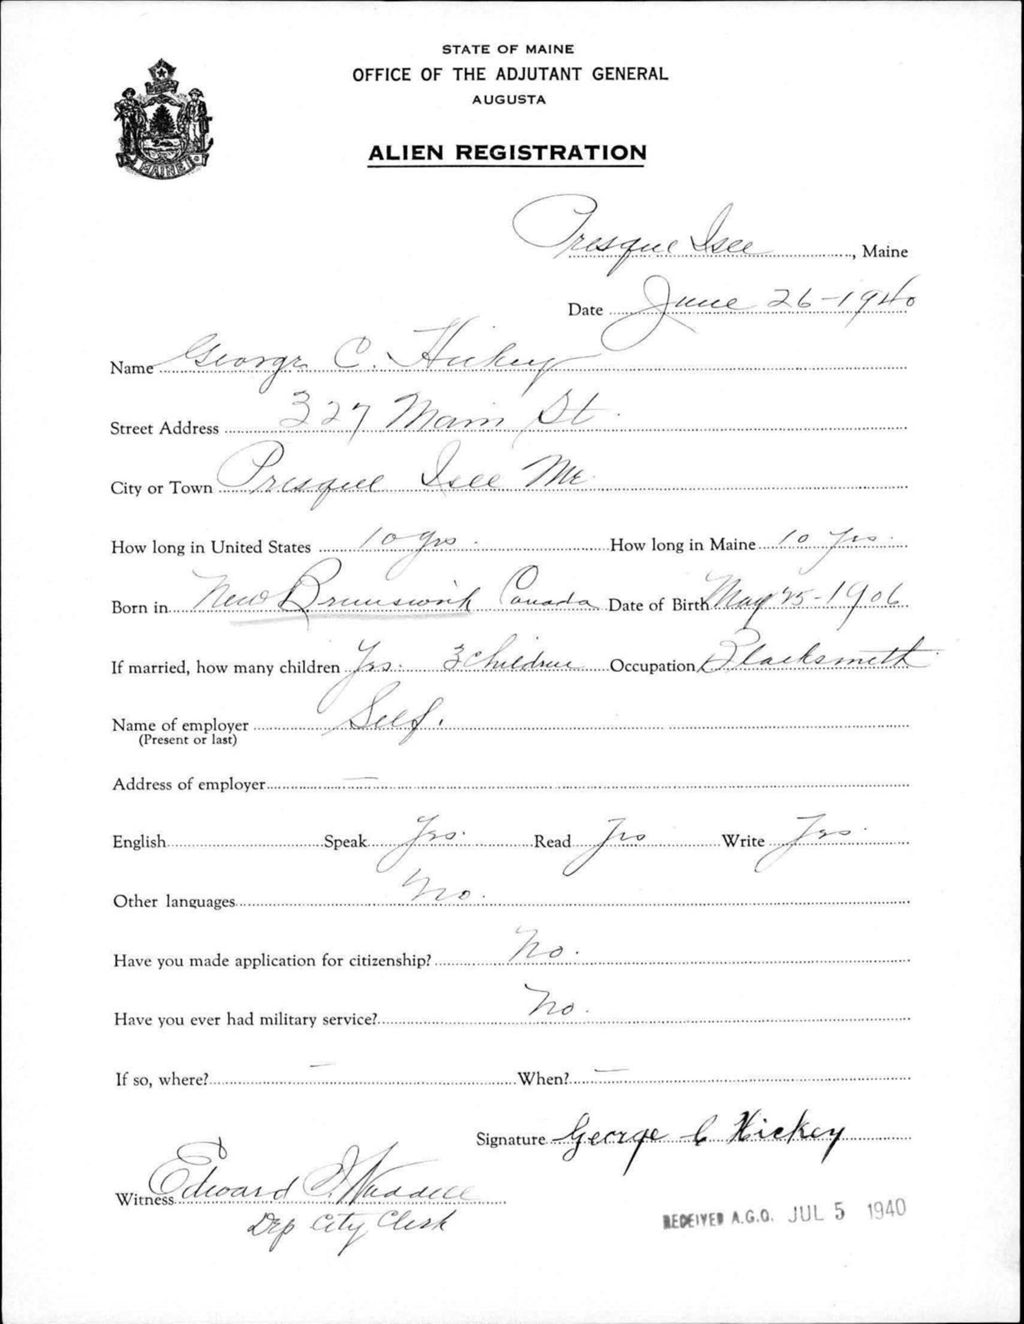 STATE OF MAINE
OFFICE OF THE ADJUTANT GENERAL
AUGUSTA
MAINE
ALIEN REGISTRATION
Presque Isle, Maine
Date June 26-1940
Name George C. Hickey
Street Address 327 Main St.
City or Town Presque Isle Me.
How long in United States 10 yrs. How long in Maine 10 Yrs.
Born in New Brunswick Canada Date of Birth May 25-1906
If married, how many children Yes. 3 Children Occupation Blacksmith
Name of employer Self.
(Present or last)
Address of employer —
English Speak Yes. Read Yes Write Yes.
Other languages No.
Have you made application for citizenship? No.
Have you ever had military service? No.
If so, where? — When? —
Signature George C Hickey
Witness Edward I. Waddell
Dep City Clerk
RECEIVED A.G.O. JUL 5 1940